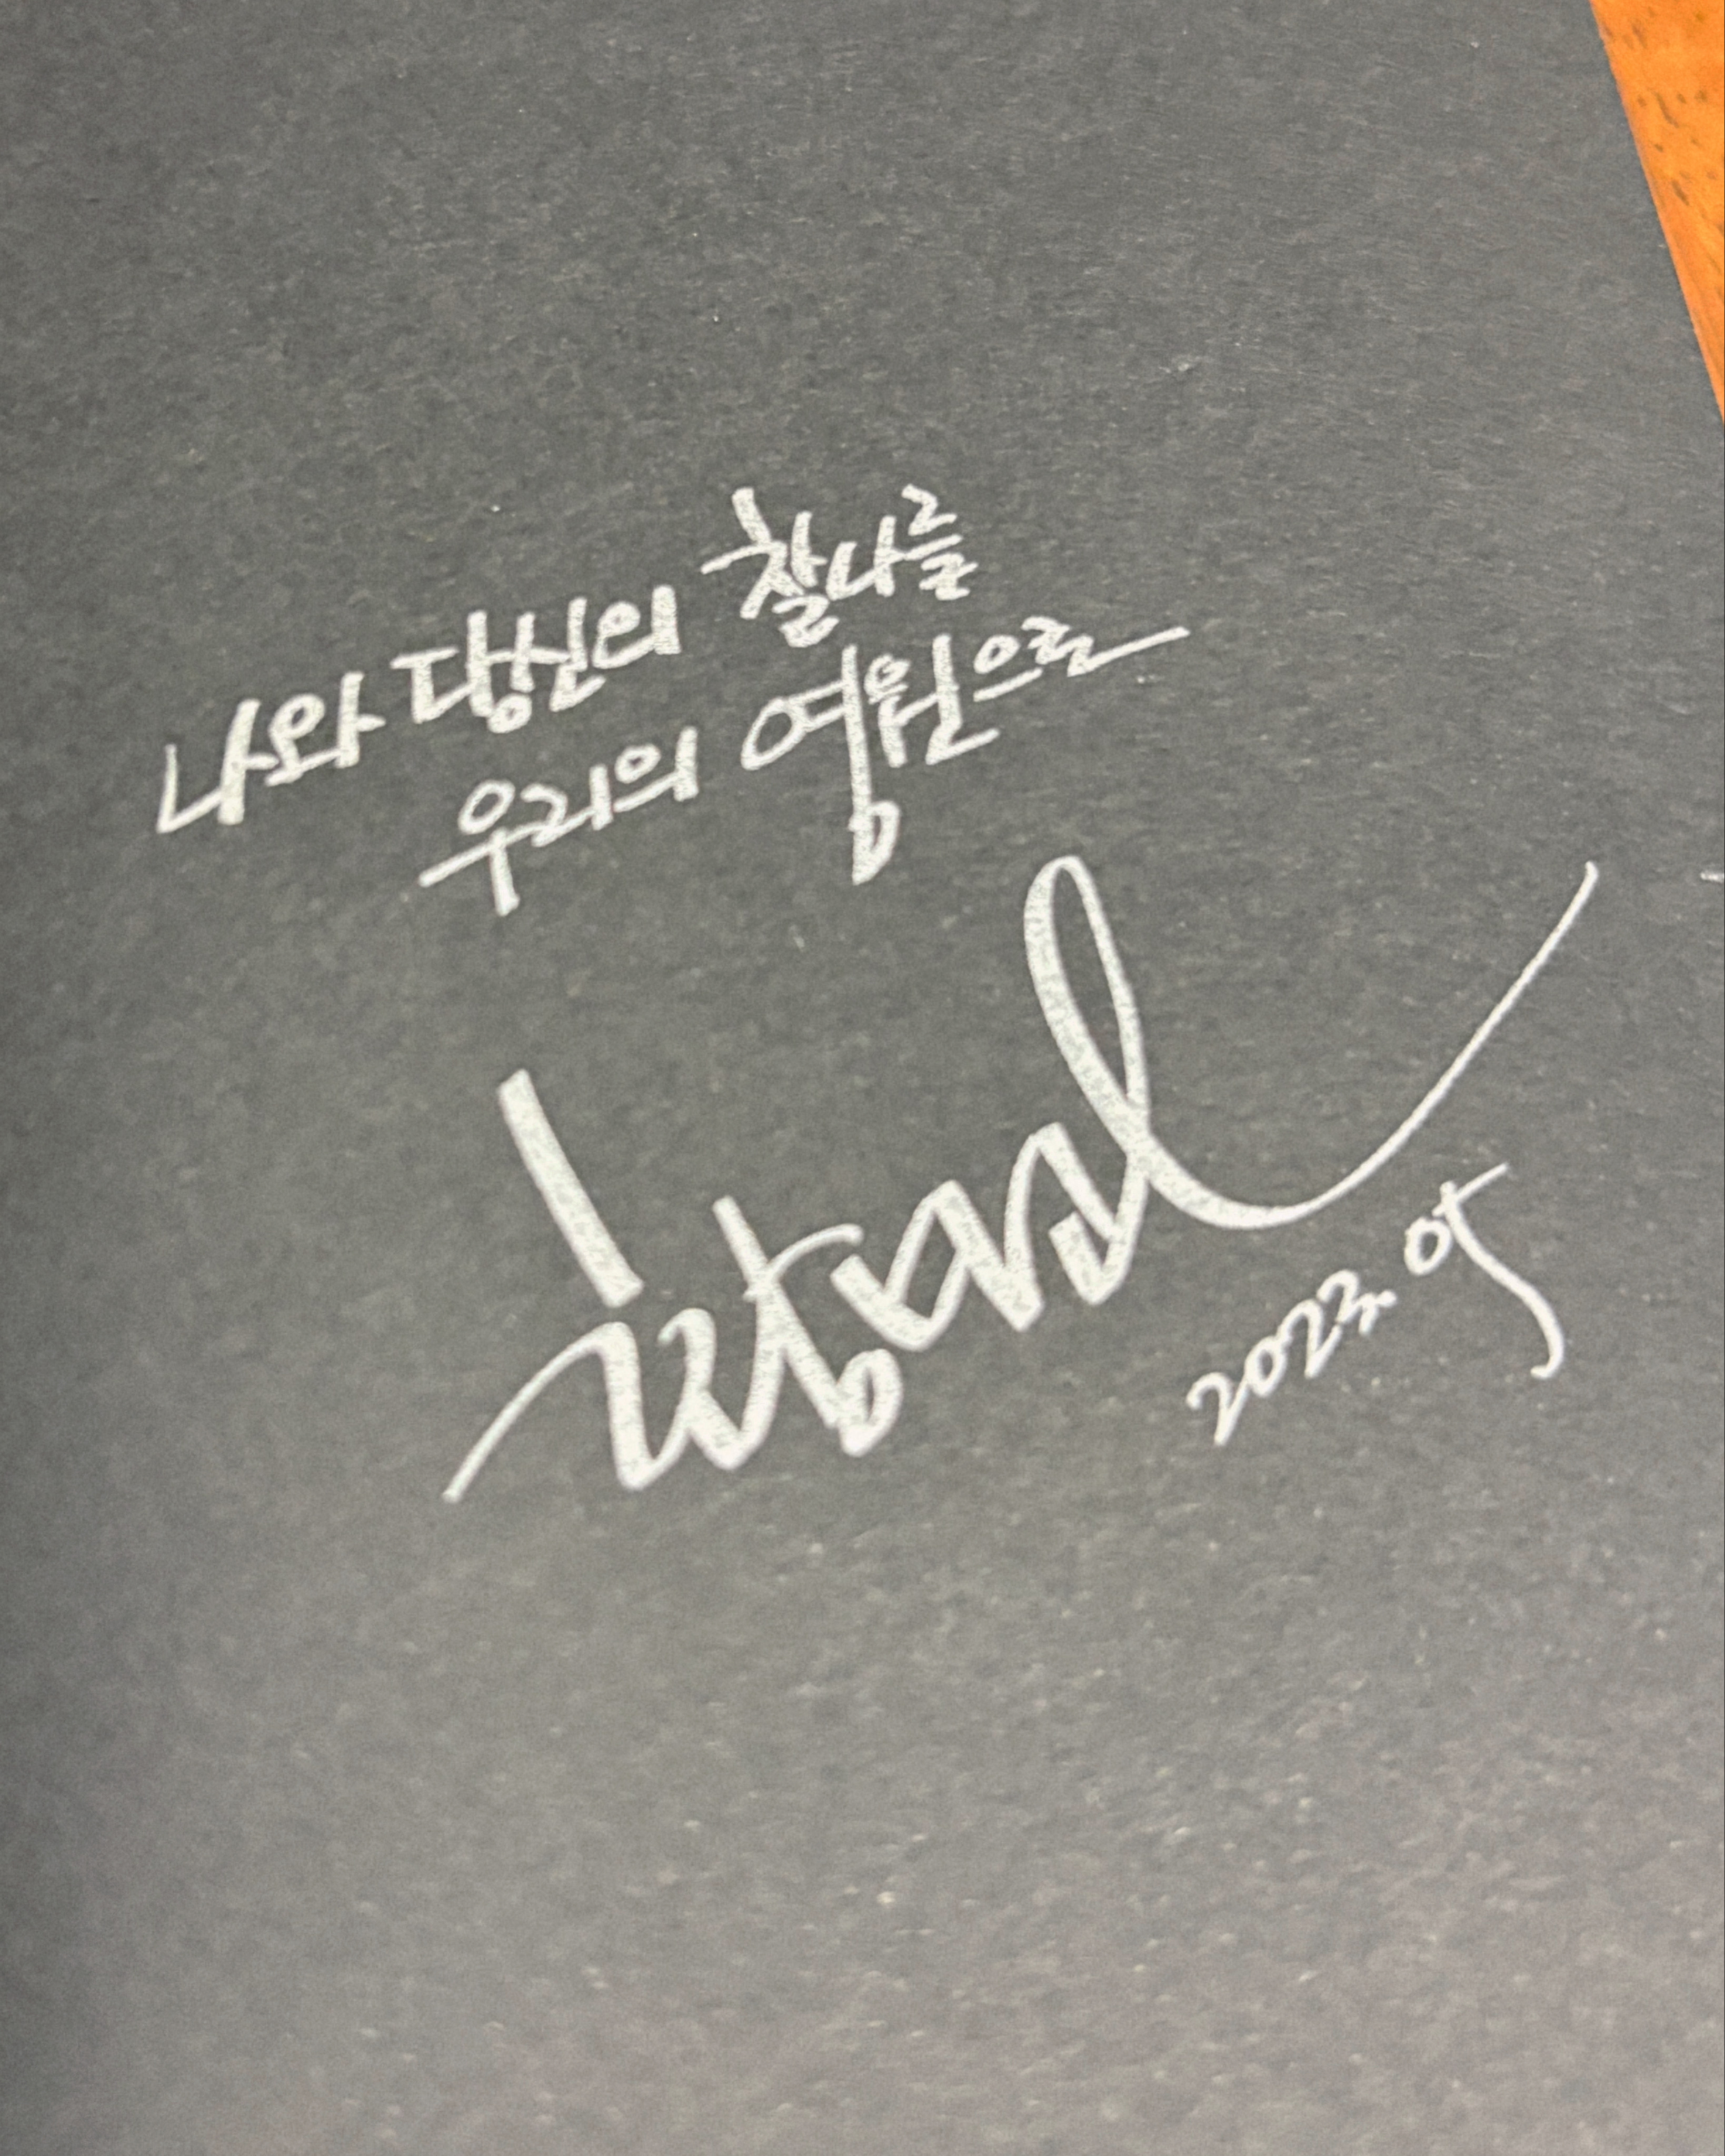 나와 당신의 찰나를
우리의 영원으로
2023.